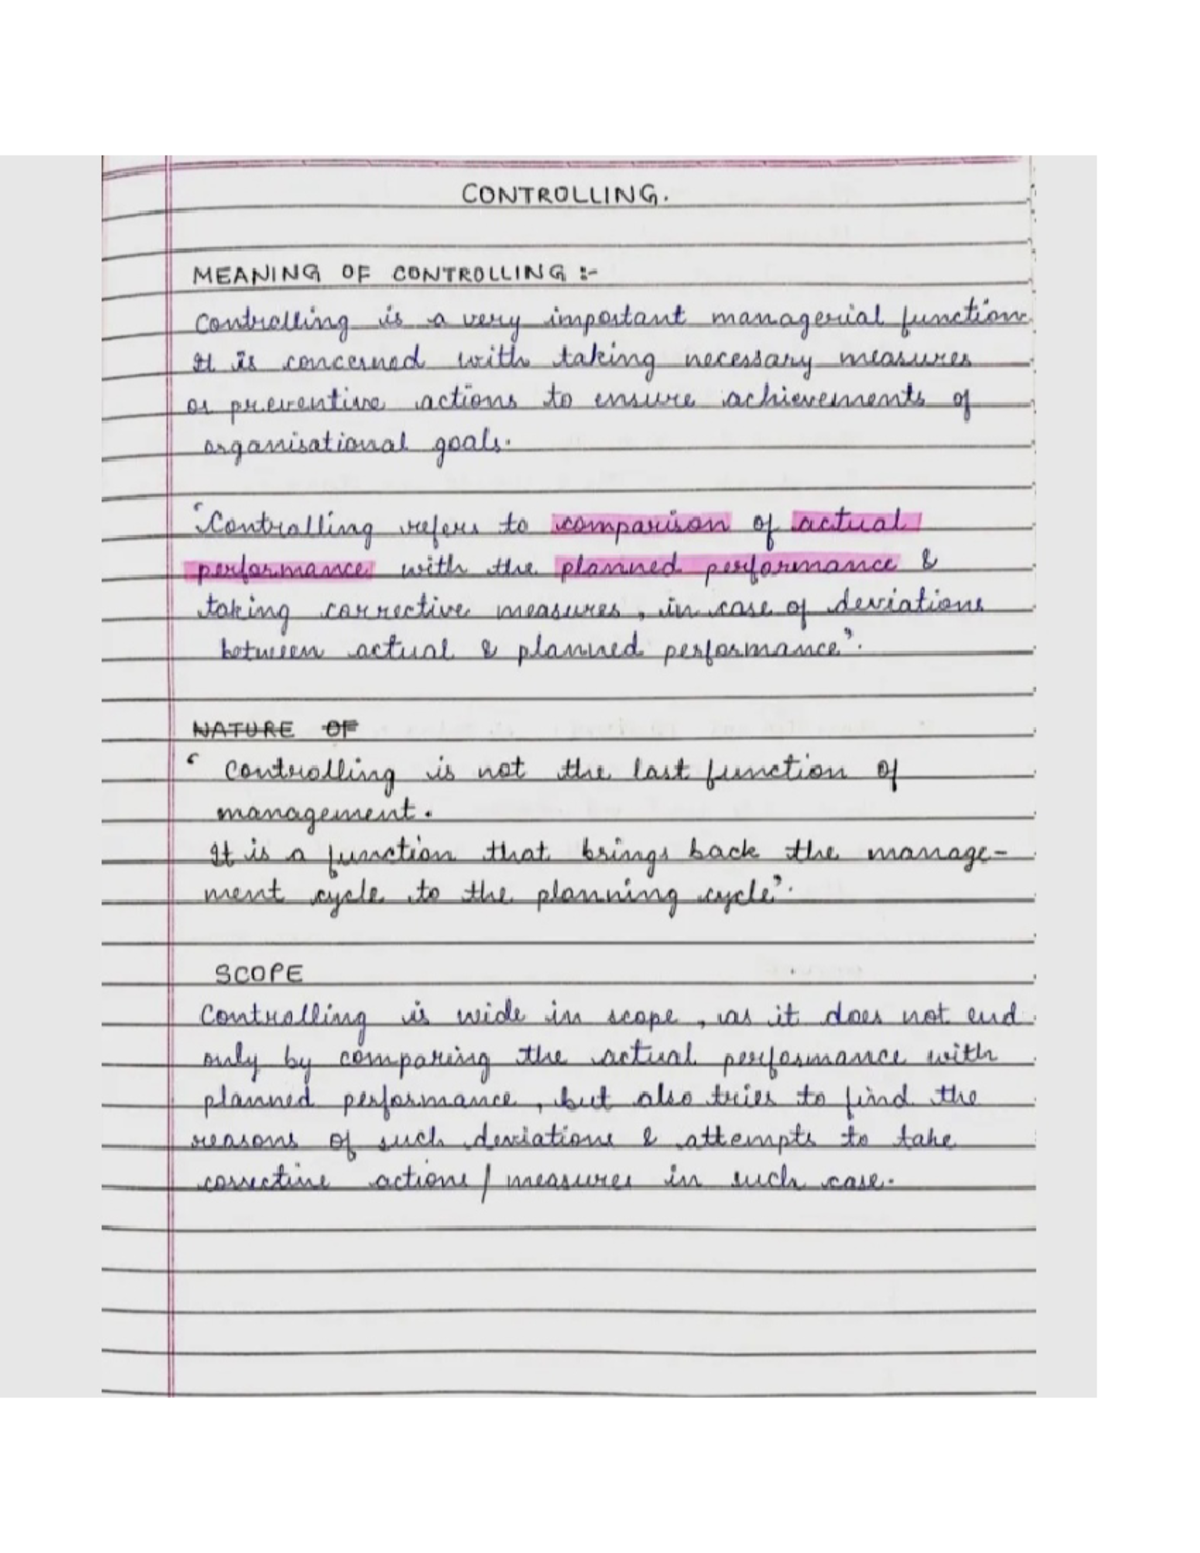 CONTROLLING.
MEANING OF CONTROLLING :-
Controlling is a very important managerial function.
It is concerned with taking necessary measures
or preventive actions to ensure achievements of
organisational goals.
'Controlling refers to comparison of actual
performance with the planned performance &
taking corrective measures, in case of deviations
between actual & planned performance'.
NATURE OF
' Controlling is not the last function of
management.
It is a function that brings back the manage-
ment cycle to the planning cycle'.
SCOPE
Controlling is wide in scope, as it does not end
only by comparing the actual performance with
planned performance, but also tries to find the
reasons of such deviations & attempts to take
corrective actions / measures in such case.